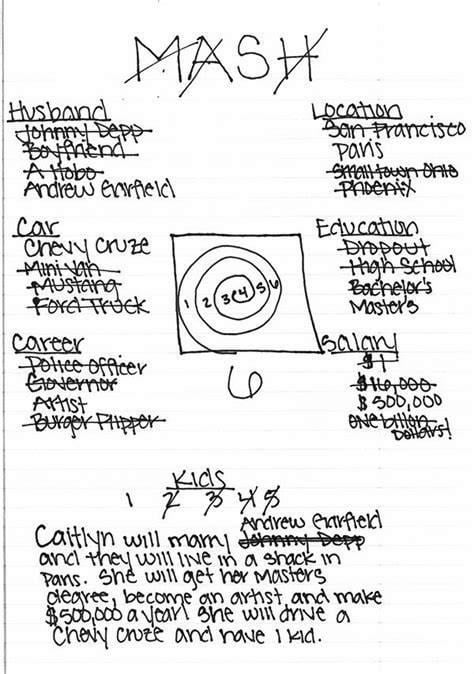 MASH
Husband
Johnny Depp
Boyfriend
A Hobo
Andrew Garfield
Location
San Francisco
Paris
Small town Ohio
Phoenix
Car
Chevy Cruze
Mini Van
Mustang
Ford Truck
Education
Dropout
High School
Bachelor's
Masters
1 2 3 4 5 6
6
Career
Police Officer
Governor
Artist
Burger Flipper
Salary
$1
$16,000
$500,000
One billion
Dollars!
Kids
1 2 3 4 5
Andrew Garfield
Caitlyn will marry Johnny Depp
and they will live in a shack in
Paris. She will get her Masters
degree, become an artist, and make
$500,000 a year! She will drive a
Chevy Cruze and have 1 kid.